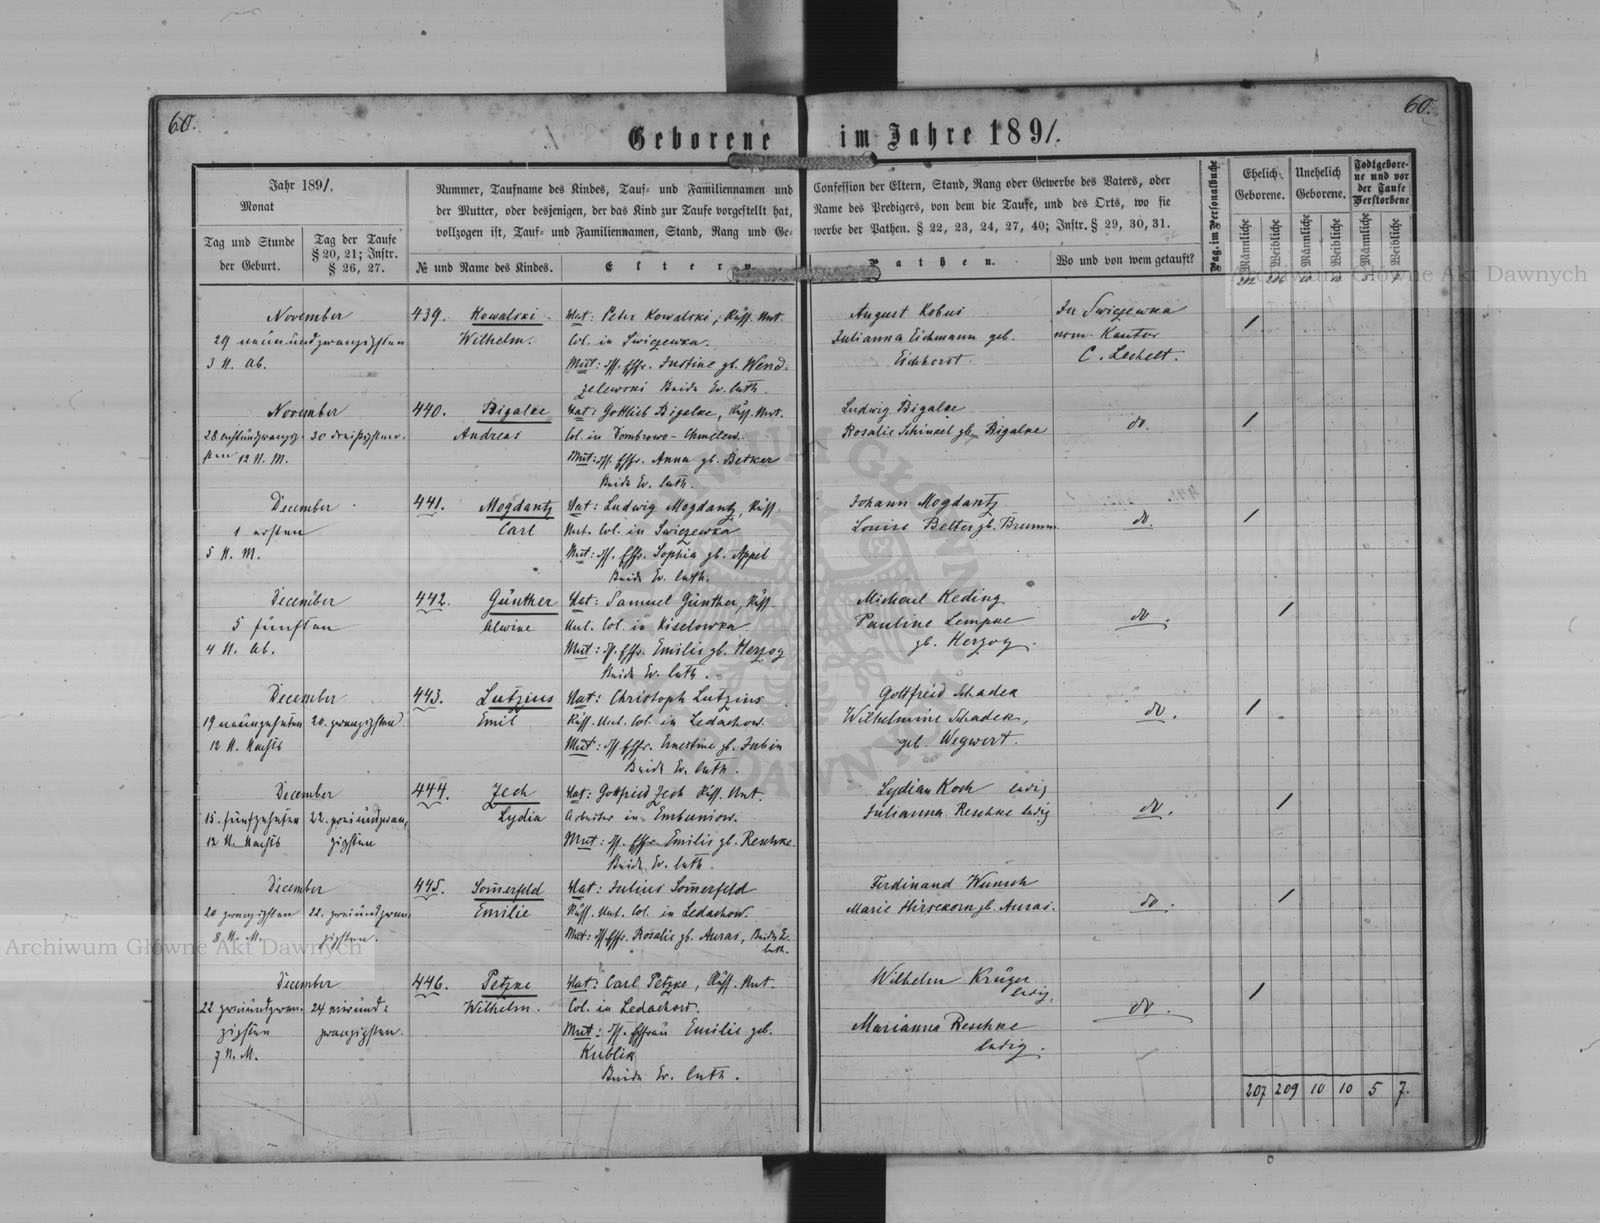 60.
60.
Geborene im Jahre 1891.
Jahr 1891.
Monat
Tag und Stunde
der Geburt.
Tag der Taufe
§ 20, 21; Instr.
§ 26, 27.
Nummer, Taufname des Kindes, Tauf- und Familiennamen und
der Mutter, oder desjenigen, der das Kind zur Taufe vorgestellt hat,
vollzogen ist, Tauf- und Familiennamen, Stand, Rang und Ge-
№ und Name des Kindes.
Eltern
Confession der Eltern, Stand, Rang oder Gewerbe des Vaters, oder
Name des Predigers, von dem die Taufe, und des Orts, wo sie
werbe der Pathen. § 22, 23, 24, 27, 40; Instr. § 29, 30, 31.
Pathen.
Wo und von wem getauft?
Pag. im Personalbuche
Ehelich
Geborene.
Unehelich
Geborene.
Todtgebore-
ne und vor
der Taufe
Verstorbene
Männliche
Weibliche
Männliche
Weibliche
Männliche
Weibliche
202 206 10 10 5 7
November
29 neunundzwanzigsten
3 U. Ab.
439. Kowalski
Wilhelm.
Vat: Peter Kowalski, Russ. Unt.
Col. in Swiczewka.
Mut: dss. Ehfr. Justine gb. Wend-
zelewski Beide Ev. luth.
August Kobus
Julianna Eichmann geb.
Eichhorst
In Swiczewka
vom Kantor
C. Lechelt.
/
November
28 achtundzwanzig-
sten 12 U. M.
30 dreissigsten.
440. Bigalke
Andreas
Vat: Gottlieb Bigalke, Russ. Unt.
Col. in Dombrowo-Chmelew.
Mut: dss. Ehfr. Anna gb. Betker
Beide Ev. luth.
Ludwig Bigalke
Rosalie Schinkel gb. Bigalke
do.
/
December
1 ersten
5 U. M.
441. Mogdantz
Carl
Vat: Ludwig Mogdantz, Russ.
Unt. Col. in Swiczewka
Mut: dss. Ehfr. Sophia gb. Appel
Beide Ev. luth.
Johann Mogdantz
Louise Belter gb. Brumm
do.
/
December
5 fünften
4 U. Ab.
442. Günther
Alwine
Vat: Samuel Günther, Russ.
Unt. Col. in Kiselowka
Mut: dss. Ehfr. Emilie gb. Herzog
Beide Ev. luth.
Michael Keding
Pauline Lempke
gb. Herzog.
do.
/
December
19 neunzehnten
12 U. Nachts
20. zwanzigsten
443. Lutzius
Emil
Vat: Christoph Lutzius
Russ. Unt. Col. in Ledachow.
Mut: dss. Ehfr. Ernestine gb. Jabin
Beide Ev. luth.
Gottfried Schadek
Wilhelmine Schadek,
geb. Wegwert.
do.
/
December
15. fünfzehnten
12 U. Nachts
22. zweiundzwan-
zigsten
444. Zech
Lydia
Vat: Gottfried Zech Russ. Unt.
Arbeiter in
Mut: dss. Ehfr. Emilie gb. Reschke
Beide Ev. luth.
Lydian Koch ledig
Julianna Reschke ledig
do.
/
December
20 zwanzigsten
8 U. M.
22. zweiundzwan-
zigsten.
445. Som̄erfeld
Emilie
Vat: Julius Som̄erfeld
Russ. Unt. Col. in Ledachow.
Mut: dss. Ehfr. Rosalie gb. Auras, Beide E.
luth.
Ferdinand Wunsch
Marie Hirsekorn gb. Auras.
do.
/
December
22 zweiundzwan-
zigsten
7 U. M.
24 vierund-
zwanzigsten.
446. Petzke
Wilhelm.
Vat: Carl Petzke, Russ. Unt.
Col. in Ledachow.
Mut: dss. Ehfrau Emilie geb.
Kublik
Beide Ev. luth.
Wilhelm Krüger
ledig.
Marianna Reschke
ledig.
do.
/
207 209 10 10 5 7.
Archiwum Główne Akt Dawnych
Archiwum Główne Akt Dawnych